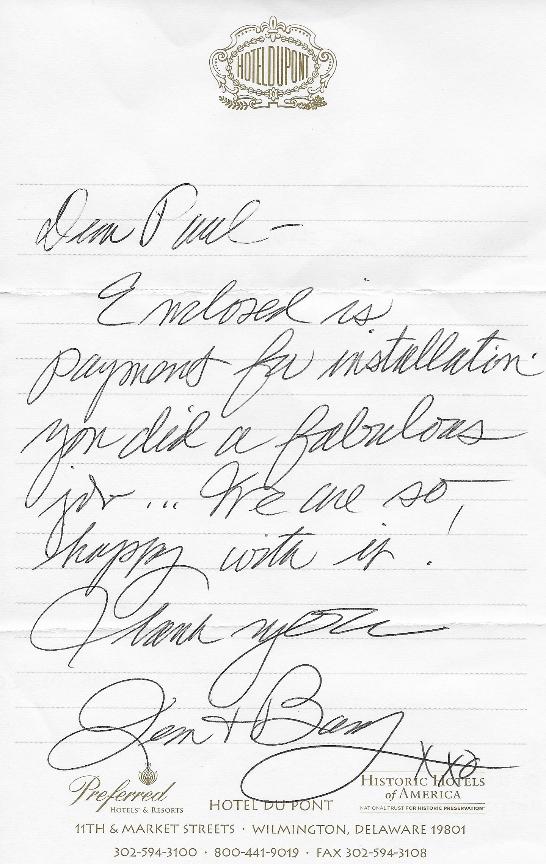 HOTEL DU PONT
Dear Paul –
Enclosed is
payment for installation.
you did a fabulous
job ... We are so
happy with it!
Thank you
Jem + Barry
xxo
Preferred
HOTELS & RESORTS
HOTEL DU PONT
HISTORIC HOTELS
of AMERICA
NATIONAL TRUST FOR HISTORIC PRESERVATION
11TH & MARKET STREETS · WILMINGTON, DELAWARE 19801
302-594-3100 · 800-441-9019 · FAX 302-594-3108